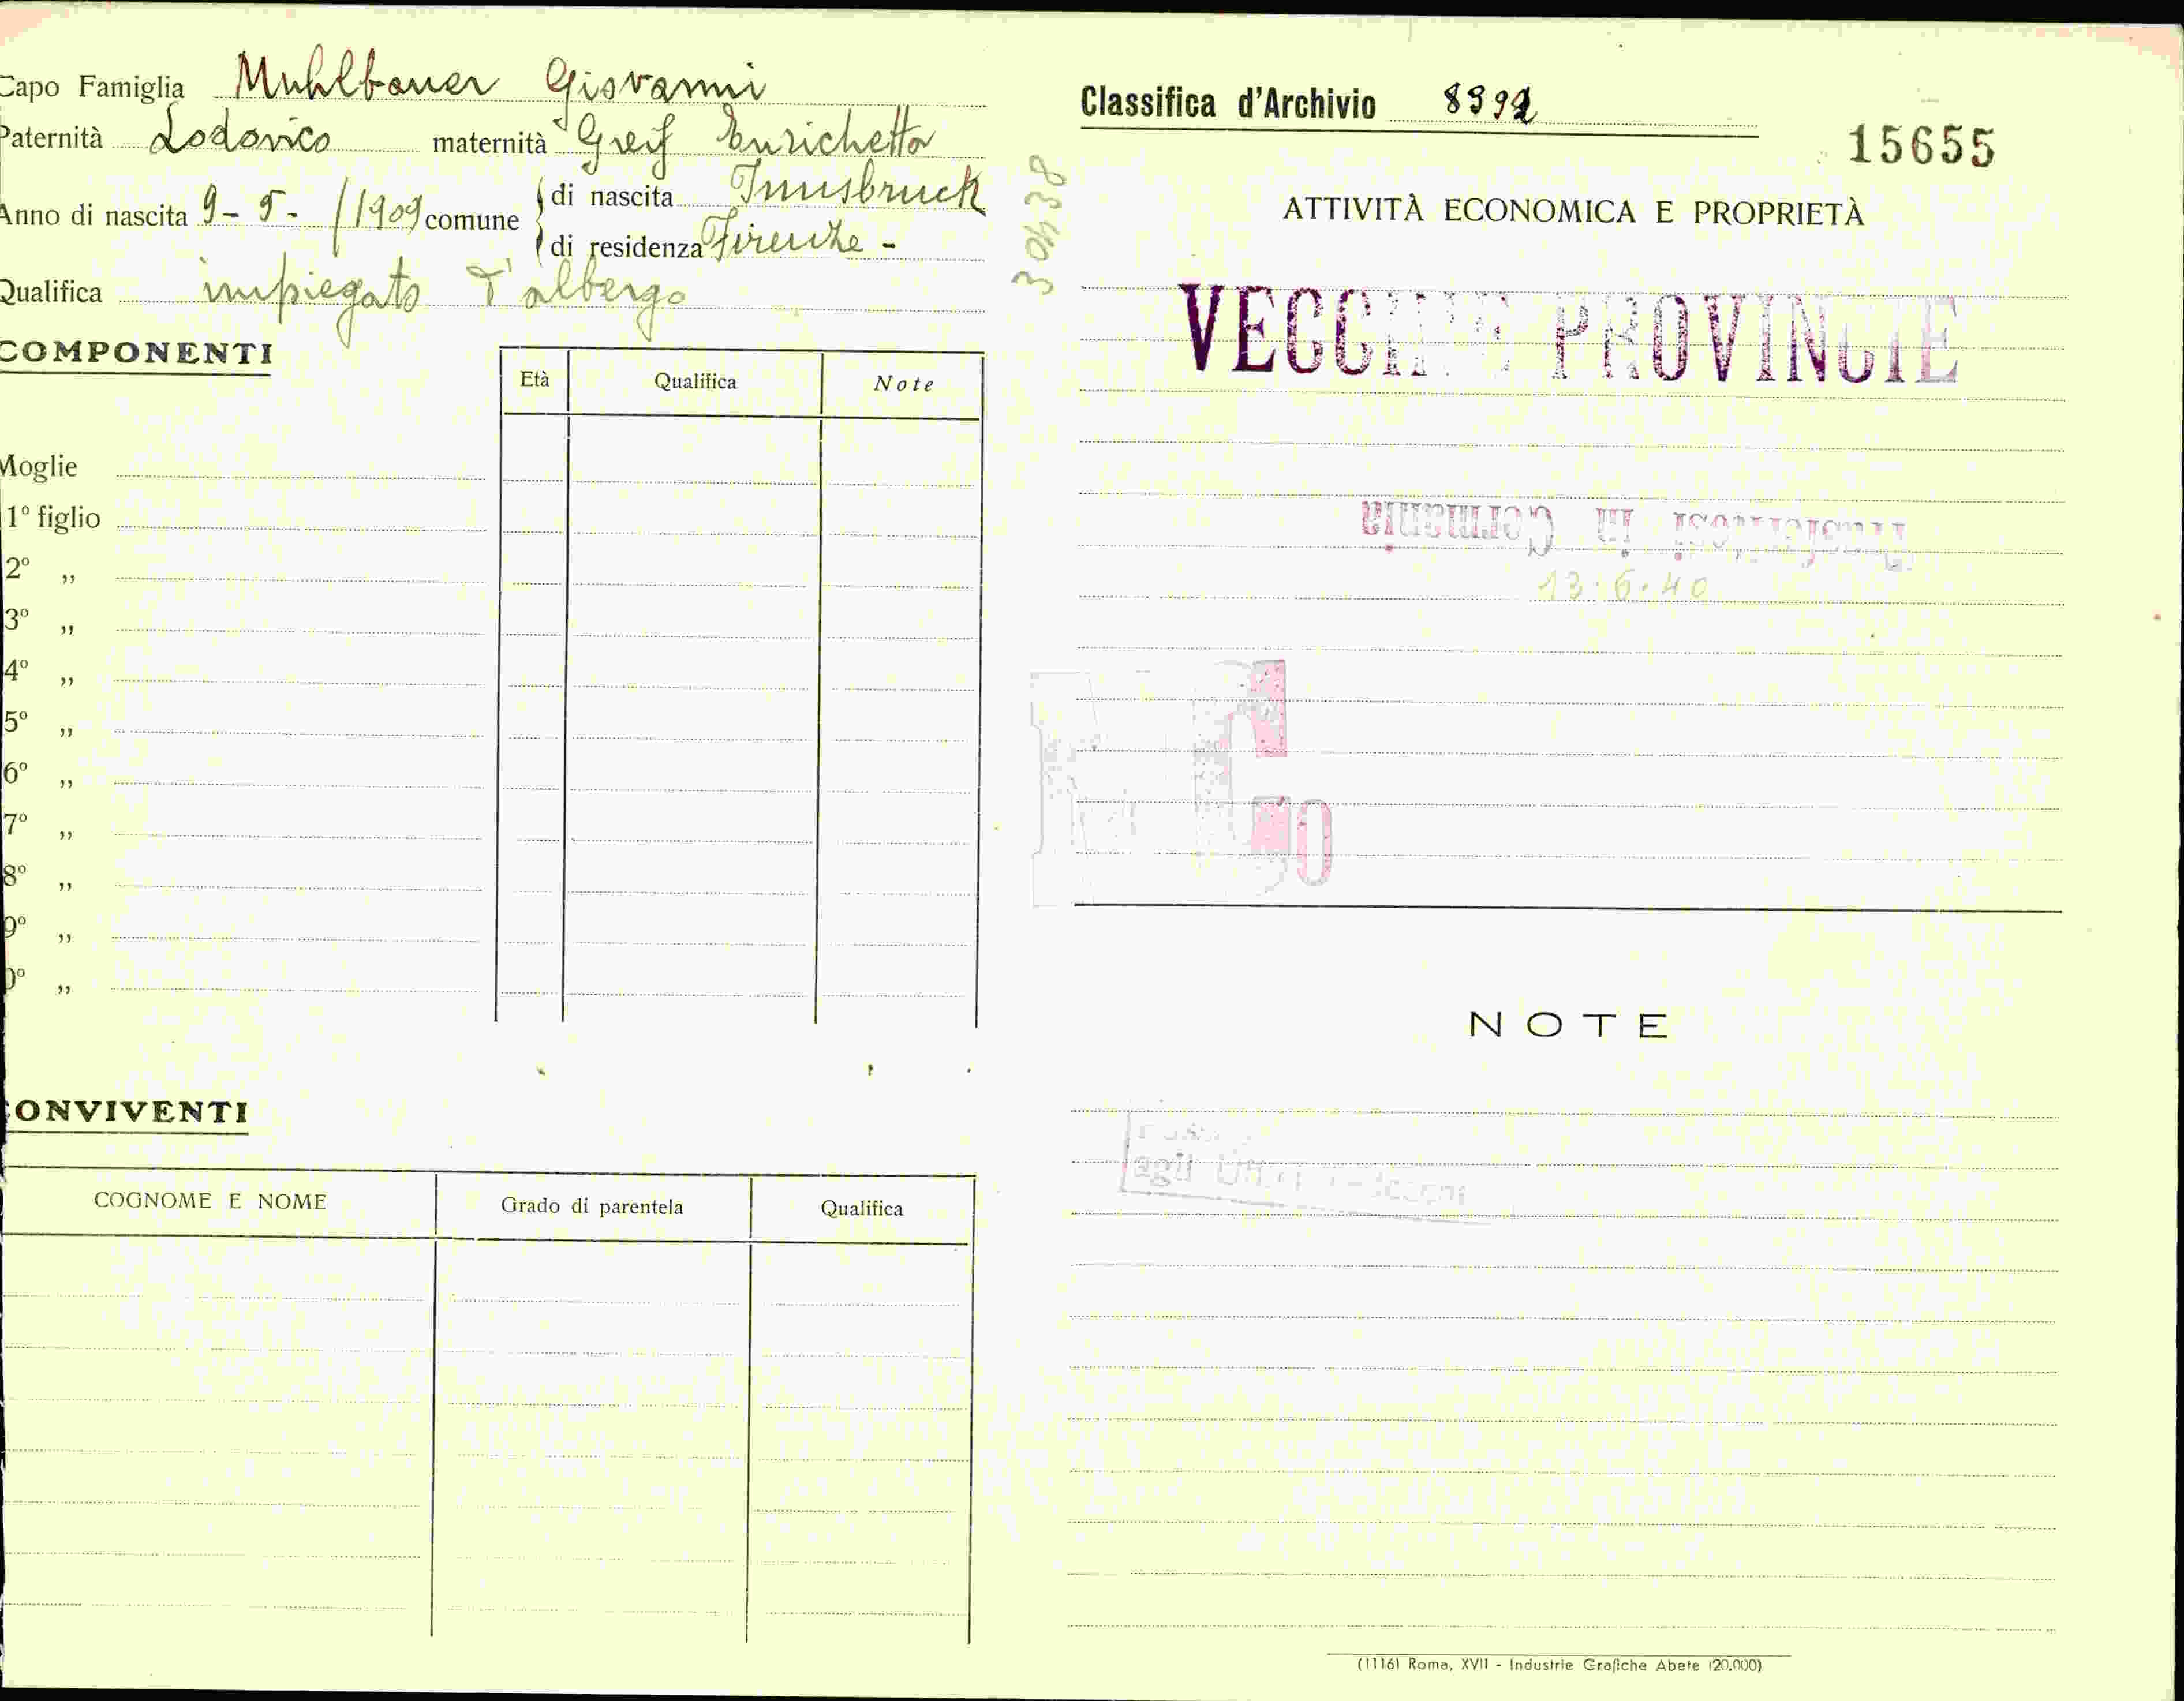 Capo Famiglia Muhlbauer Giovanni
Paternità Lodovico maternità Greif Enrichetta
Anno di nascita 9-5-/1909 comune di nascita Innsbruck
di residenza Firenze -
Qualifica impiegato d'albergo
COMPONENTI
Età Qualifica Note
Moglie
1º figlio
2º „
3º „
4º „
5º „
6º „
7º „
8º „
9º „
0º „
CONVIVENTI
COGNOME E NOME Grado di parentela Qualifica
304338
Classifica d'Archivio 8392
15655
ATTIVITÀ ECONOMICA E PROPRIETÀ
VECCHIE PROVINCIE
Trasferitosi in Germania
13.6.40
NOTE
agli
(1116) Roma, XVII - Industrie Grafiche Abete (20.000)